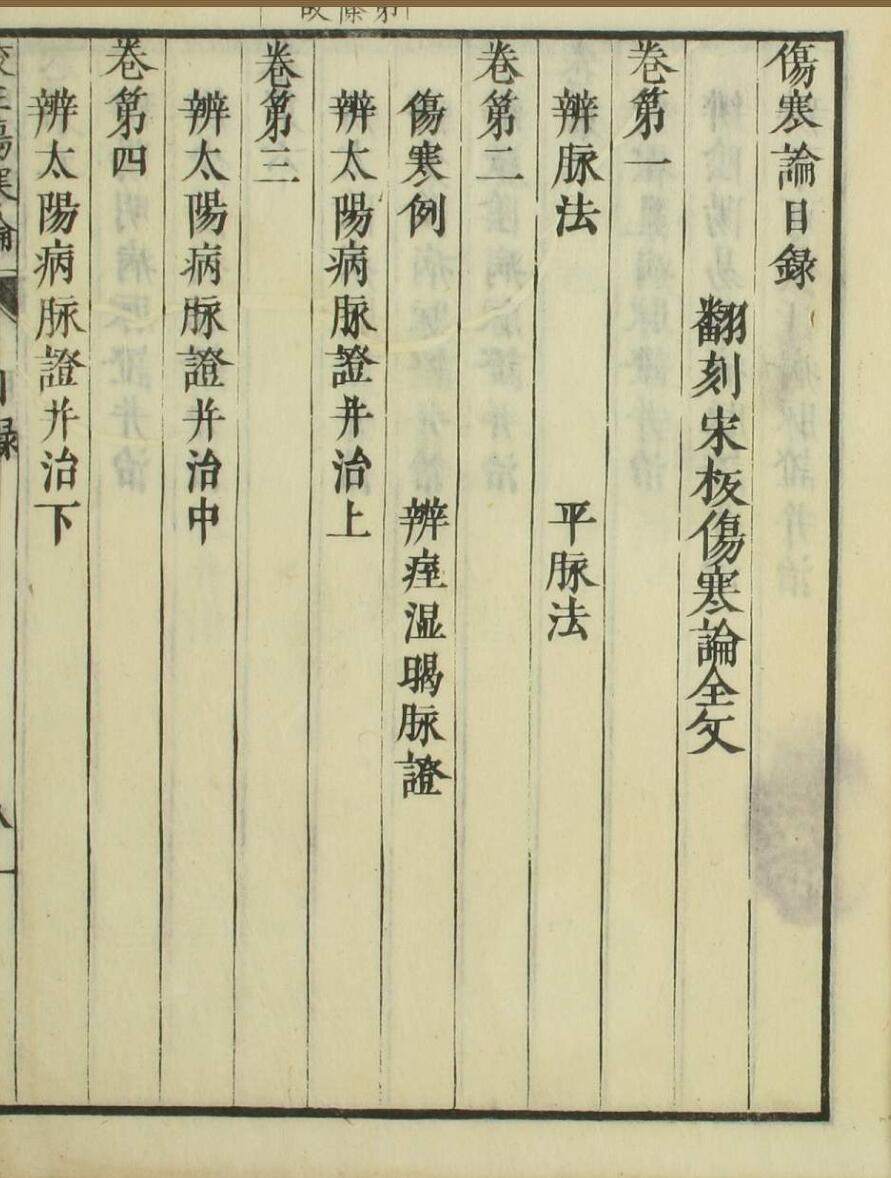 傷寒論目錄
翻刻宋板傷寒論全文
卷第一
辨脉法 平脉法
卷第二
傷寒例 辨痓湿暍脉證
辨太陽病脉證并治上
卷第三
辨太陽病脉證并治中
卷第四
辨太陽病脉證并治下